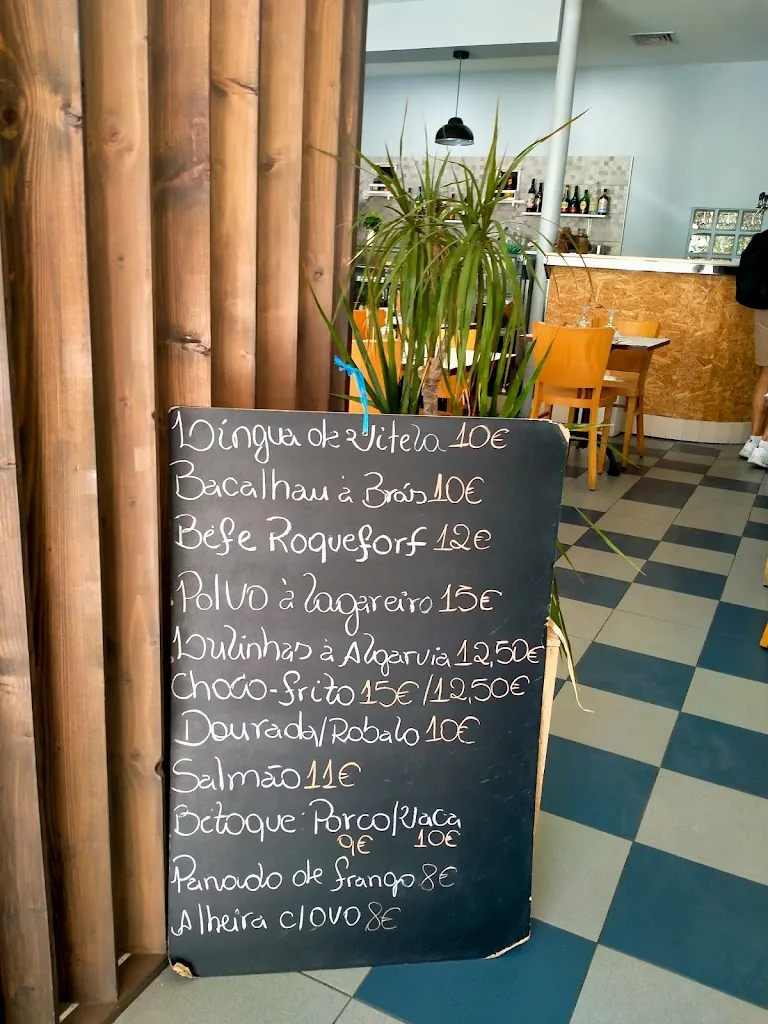 Língua de Vitela 10€
Bacalhau à Brás 10€
Bife Roquefort 12€
Polvo à Lagareiro 15€
Lulinhas à Algarvia 12,50€
Choco-frito 15€/12,50€
Dourada/Robalo 10€
Salmão 11€
Bitoque: Porco/Vaca
9€ 10€
Panado de frango 8€
Alheira c/ovo 8€